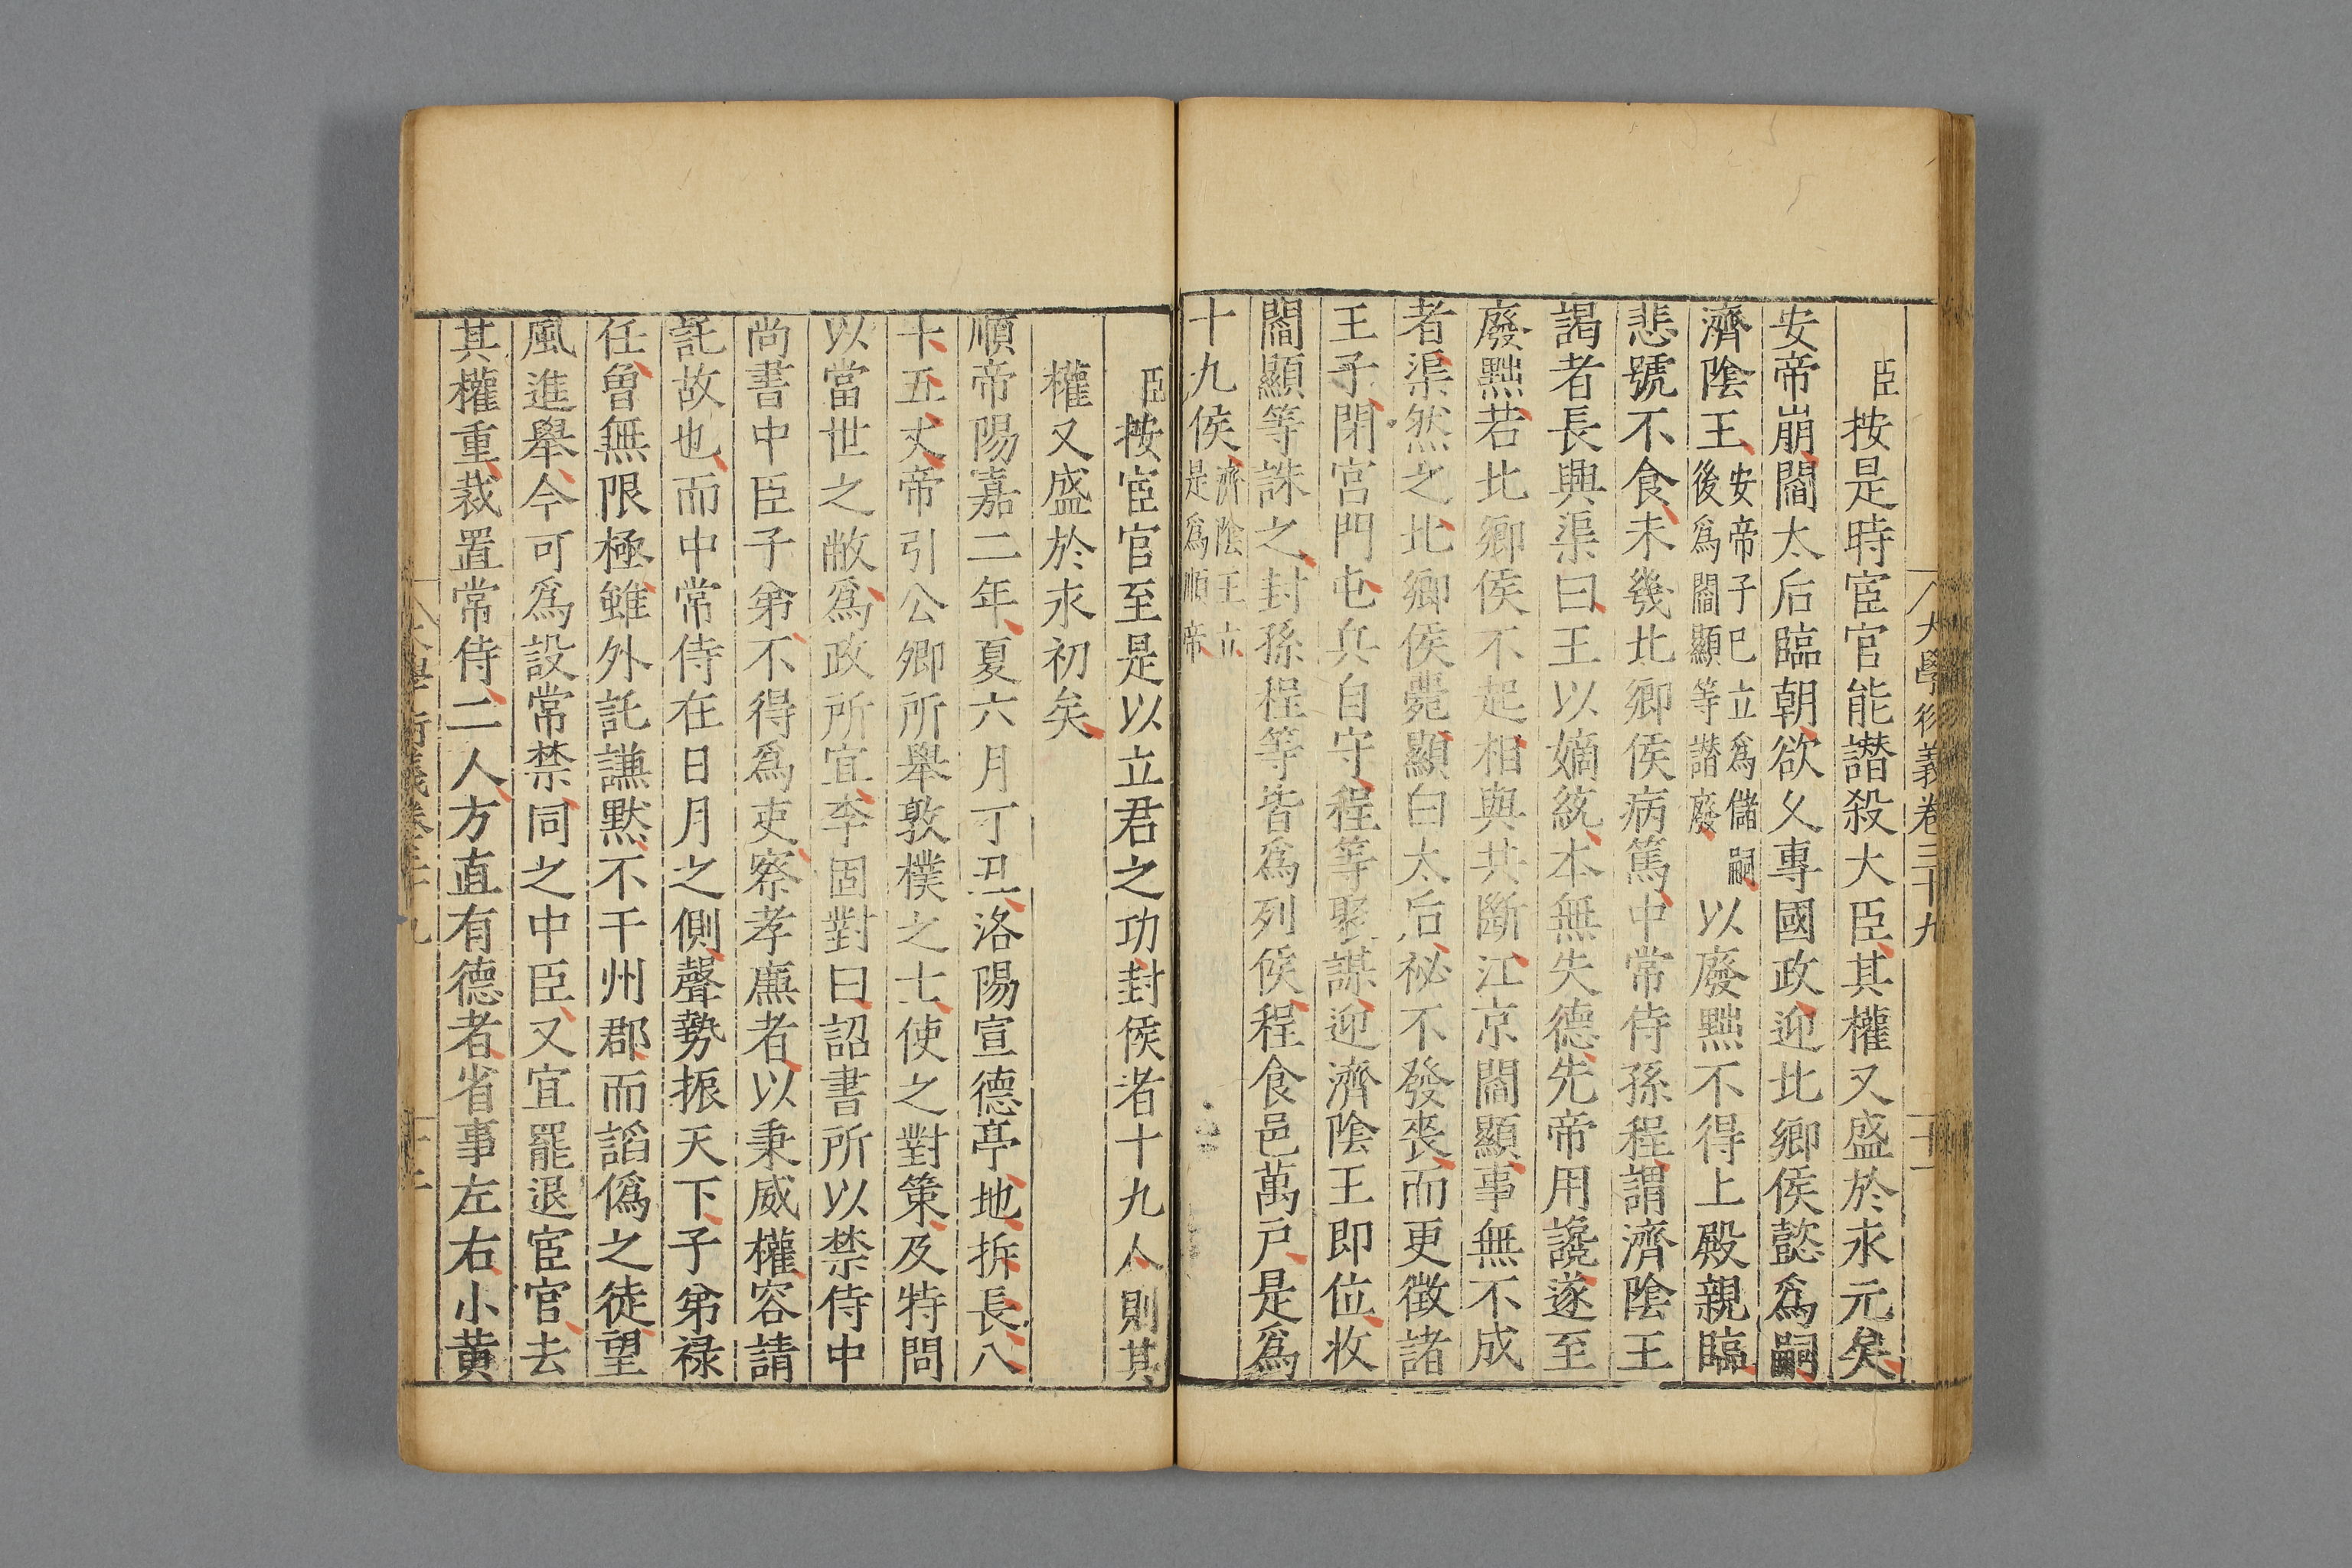 大學衍義卷三十九
十一
臣按是時宦官能譖殺大臣其權又盛於永元矣
安帝崩閻太后臨朝欲乆專國政迎北鄉侯懿爲嗣
濟隂王安帝子已立爲儲嗣後爲閻顯等譖廢以廢黜不得上殿親臨
悲號不食未幾北鄉侯病篤中常侍孫程謂濟隂王
謁者長興渠曰王以嫡統本無失德先帝用讒遂至
廢黜若北鄉侯不起相與共斷江京閻顯事無不成
者渠然之北鄉侯薨顯白太后祕不發喪而更徵諸
王子閉宮門屯兵自守程等聚謀迎濟隂王即位收
閻顯等誅之封孫程等皆爲列侯程食邑萬戶是爲
十九侯濟隂王立是爲順帝
臣按宦官至是以立君之功封侯者十九人則其
權又盛於永初矣
順帝陽嘉二年夏六月丁丑洛陽宣德亭地拆長八
十五丈帝引公卿所舉敦樸之士使之對策及特問
以當世之敝爲政所宜李固對曰詔書所以禁侍中
尚書中臣子弟不得爲吏察孝廉者以秉威權容請
託故也而中常侍在日月之側聲勢振天下子弟祿
任曾無限極雖外託謙默不干州郡而諂僞之徒望
風進舉今可爲設常禁同之中臣又宜罷退宦官去
其權重裁置常侍二人方直有德者省事左右小黃
大學衍義卷三十九